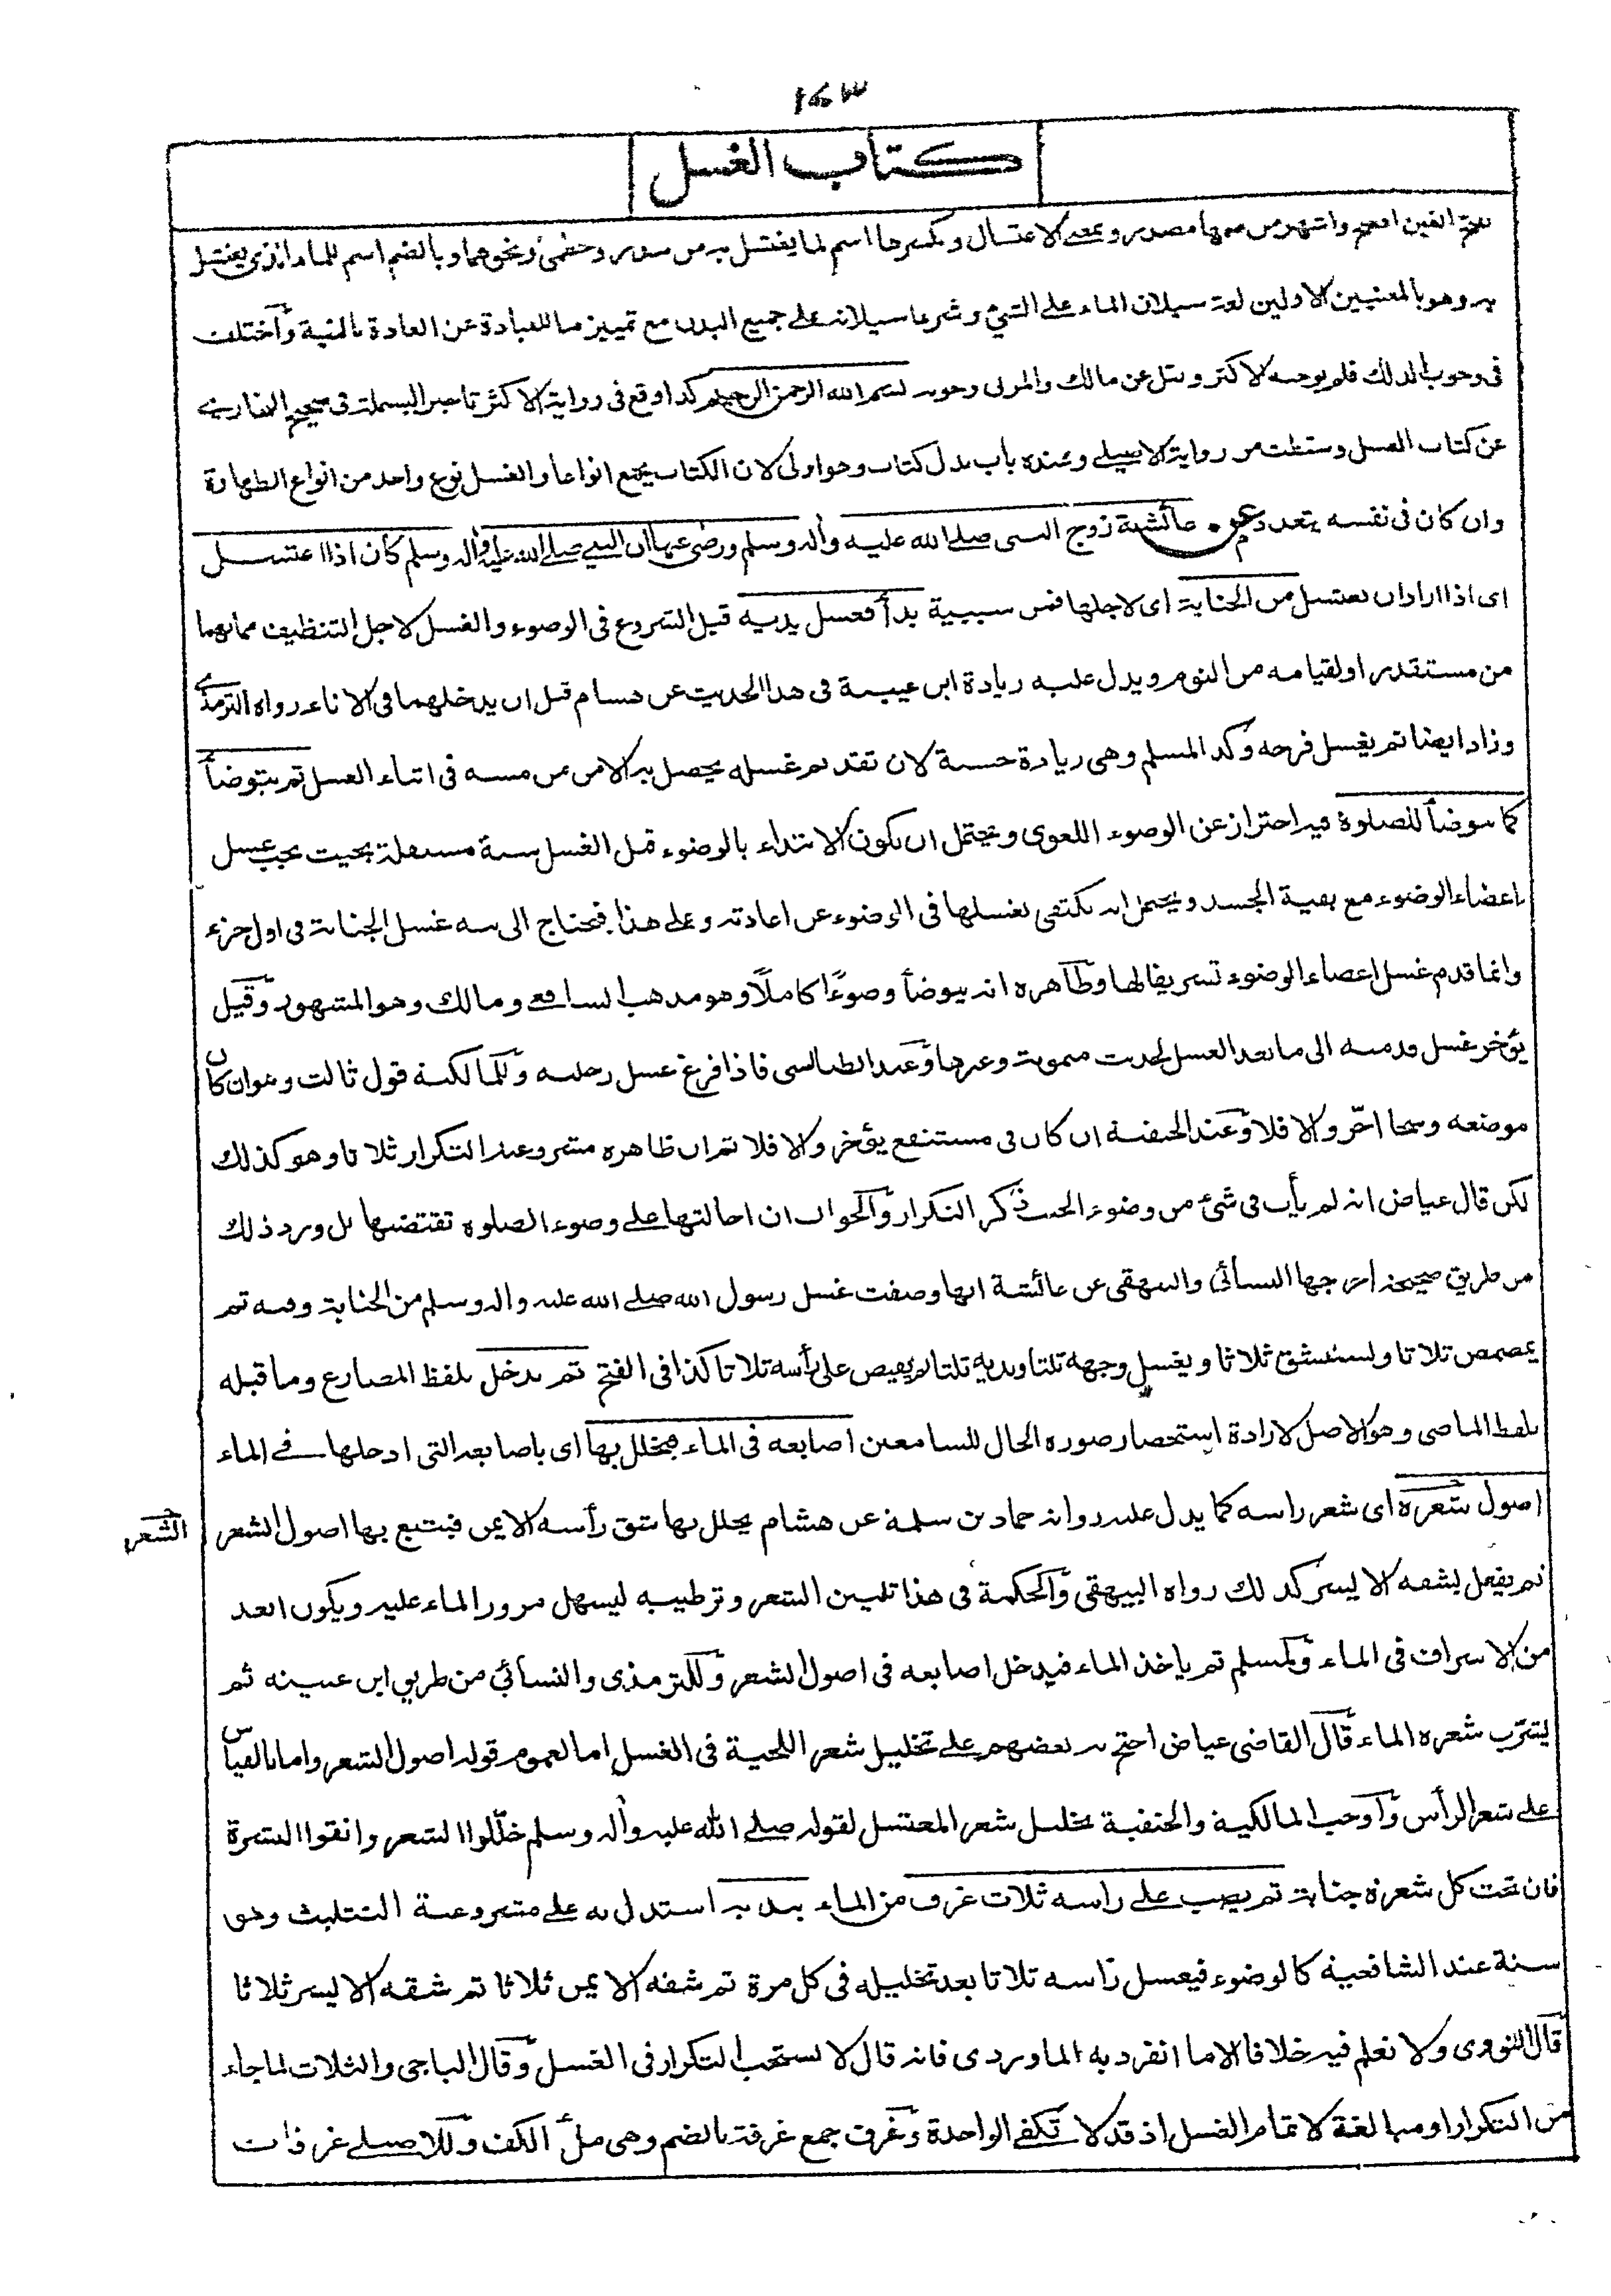 ١٤٣
كتاب الغسل
بفتح الغين افصح واشهر من ضمها مصدر وبمعنى الاغتسال وبكسرها اسم لما يغتسل به من سدر وخطمى ونحوهما وبالضم اسم للماء الذى يغتسل
به وهو بالمعنيين الاولين لغة سيلان الماء على الشئ وشرعا سيلانه على جميع البدن مع تمييز ما للعبادة عن العادة بالنية وآختلف
فى وجوب الدلك فلم يوجبه الاكثر ونقل عن مالك والمزنى وجوبه بسم الله الرحمن الرحيم كذا وقع فى رواية الاكثر تاخير البسملة فى صحيح البخارى
عن كتاب الغسل وسقطت من رواية الاصيلى وعنده باب بدل كتاب وهو اولى لان الكتاب يجمع انواعا والغسل نوع واحد من انواع الطهارة
وان كان فى نفسه يتعدد عن عائشة زوج النبى صلى الله عليه وأله وسلم ورضى عنها ان النبى صلى الله عليه وأله وسلم كان اذا اغتسل
اى اذا اراد ان يغتسل من الجنابة اى لاجلها فمن سببية بدأ فغسل يديه قبل الشروع فى الوضوء والغسل لاجل التنظيف مما بهما
من مستقذر او لقيامه من النوم ويدل عليه زيادة ابن عيينة فى هذا الحديث عن هشام قبل ان يدخلهما فى الاناء رواه الترمذى
وزاد ايضا ثم يغسل فرجه وكذا لمسلم وهى زيادة حسنة لان تقديم غسله يحصل به الامن من مسه فى اثناء الغسل ثم يتوضأ
كما يتوضأ للصلوة فيه احتراز عن الوضوء اللغوى ويحتمل ان يكون الابتداء بالوضوء قبل الغسل سنة مستقلة بحيث يجب غسل
اعضاء الوضوء مع بقية الجسد ويحتمل ان يكتفى بغسلها فى الوضوء عن اعادته وعلى هذا فيحتاج الى نية غسل الجنابة فى اول جزء
وانما قدم غسل اعضاء الوضوء تشريفا لها وظآهره انه يتوضأ وضوءًا كاملًا وهو مذهب الشافعى ومالك وهو المشهور وقيل
يؤخر غسل قدميه الى ما بعد الغسل لحديث ميمونة وغيرها وعند الطيالسى فاذا فرغ غسل رجليه وللمالكية قول ثالث وهو ان كان
موضعه وسخا اخّر والا فلا وعند الحنفية ان كان فى مستنقع يؤخر والا فلا ثم ان ظاهره مشروعية التكرار ثلاثا وهو كذلك
لكن قال عياض انه لم يأت فى شئ من وضوء الجنب ذكر التكرار والجواب ان احالتها على وضوء الصلوة تقتضيها بل ورد ذلك
من طريق صحيحة اخرجها النسائى والبيهقى عن عائشة انها وصفت غسل رسول الله صلى الله عليه واله وسلم من الجنابة وفيه ثم
يمضمض ثلاثا ويستنشق ثلاثا ويغسل وجهه ثلثا ويديه ثلثا ثم يفيض على رأسه ثلاثا كذا فى الفتح ثم يدخل بلفظ المضارع وما قبله
بلفظ الماضى وهو الاصل لارادة استحضار صورة الحال للسامعين اصابعه فى الماء فيخلل بها اى باصابعه التى ادخلها فى الماء
اصول شعره اى شعر راسه كما يدل عليه رواية حماد بن سلمة عن هشام يخلل بها شق رأسه الايمن فيتبع بها اصول الشعر
الشعر
ثم يفعل بشقه الايسر كذلك رواه البيهقى والحكمة فى هذا تليين الشعر وترطيبه ليسهل مرور الماء عليه ويكون ابعد
من الاسراف فى الماء ولمسلم ثم ياخذ الماء فيدخل اصابعه فى اصول الشعر وللترمذى والنسائى من طريق ابن عيينه ثم
يشرّب شعره الماء قال القاضى عياض احتج به بعضهم على تخليل شعر اللحية فى الغسل اما لعموم قوله اصول الشعر واما بالقياس
على شعر الرأس وآوجب المالكية والحنفية تخليل شعر المغتسل لقوله صلى الله عليه وأله وسلم خلّلوا الشعر وانقوا البشرة
فان تحت كل شعرة جنابة ثم يصب على راسه ثلاث غرف من الماء بيديه استدل به على مشروعية التثليث وهو
سنة عند الشافعية كالوضوء فيغسل رأسه ثلاثا بعد تخليله فى كل مرة ثم شقه الايمن ثلاثا ثم شقه الايسر ثلاثا
قال النووى ولا نعلم فيه خلافا الا ما انفرد به الماوردى فانه قال لا يستحب التكرار فى الغسل وقال الباجى والثلاث لما جاء
من التكرار او مبالغة لاتمام الغسل اذ قد لا تكفى الواحدة وغرف جمع غرفة بالضم وهى ملأ الكف وللاصيلى غرفات